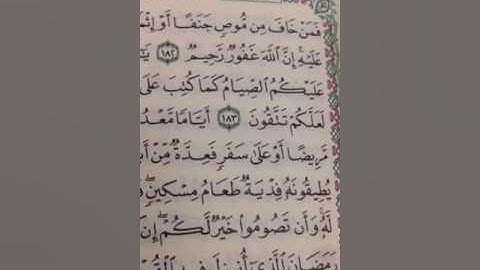 فَمَنْ خَافَ مِن مُّوصٍ جَنَفًا أَوْ إِثْمًا
عَلَيْهِ ۚ إِنَّ اللَّهَ غَفُورٌ رَّحِيمٌ ١٨٢
عَلَيْكُمُ الصِّيَامُ كَمَا كُتِبَ عَلَى
لَعَلَّكُمْ تَتَّقُونَ ١٨٣ أَيَّامًا
مَّرِيضًا أَوْ عَلَىٰ سَفَرٍ فَعِدَّةٌ مِّنْ
يُطِيقُونَهُ فِدْيَةٌ طَعَامُ مِسْكِينٍ ۖ
لَّهُ ۚ وَأَن تَصُومُوا خَيْرٌ لَّكُمْ ۖ إِن
رَمَضَانَ الَّذِي أُنزِلَ فِيهِ